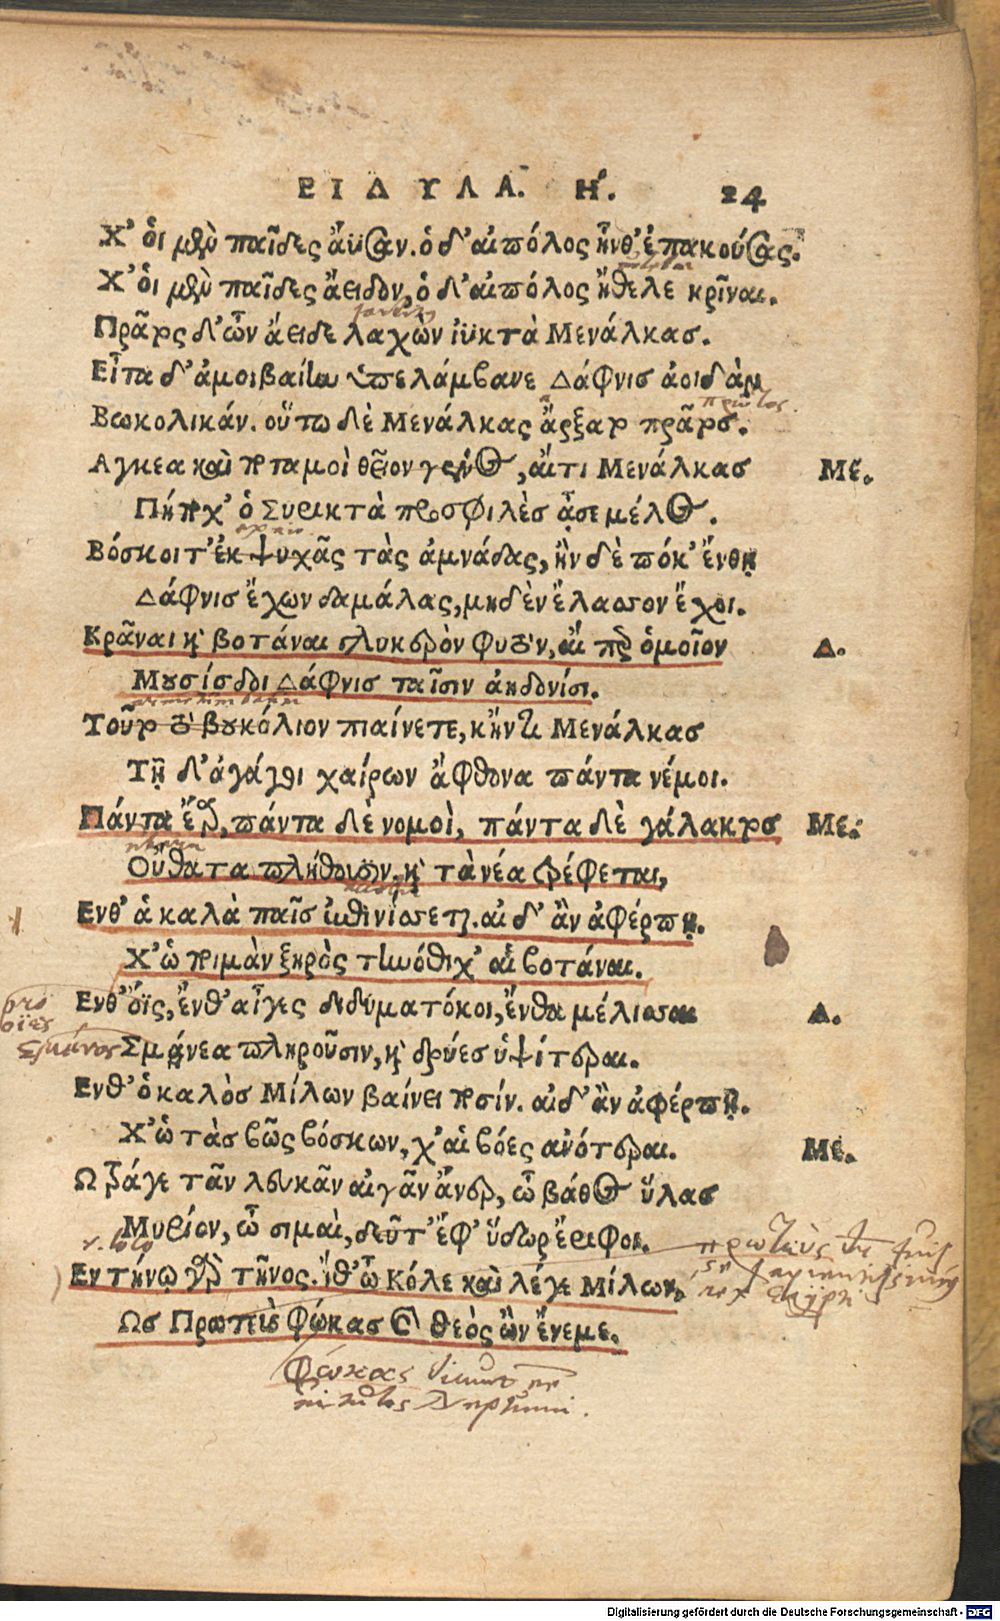 ΕΙΔΥΛΛ. Η. 24
Χ' ὁι μὲν παῖδες ἄϋσαν. ὁ δ' αἰπόλος ἦνθ' ἐπακούσας.
Χ' ὁι μὲν παῖδες ἄειδον, ὁ δ' αἰπόλος ἤθελε κρῖναι.
Πρᾶτος δ' ὦν ἄειδε λαχὼν ἰϋκτὰ Μενάλκας.
Εἶτα δ' ἀμοιβαίαν ὑπελάμβανε Δάφνις ἀοιδὰν
πρῶτος.
Βωκολικάν. οὕτω δὲ Μενάλκας ἄρξατο πρᾶτος.
Αγκεα καὶ ποταμοὶ θεῖον γένος, αἴτι Μενάλκας Με.
Πήποχ' ὁ Συρικτὰ προσφιλὲς ᾆσε μέλος.
Βόσκοιτ' ἐκ ψυχᾶς τὰς ἀμνάδας, ἢν δὲ πόκ' ἔνθῃ
Δάφνις ἔχων δαμάλας, μηδὲν ἔλασσον ἔχοι.
Κρᾶναι καὶ βοτάναι γλυκερὸν φυτὸν, αἴ περ ὁμοῖον Δ.
Μουσίσδοι Δάφνις ταῖσιν ἀηδονίσι.
Τοῦτο τὸ βουκόλιον πιαίνετε, κἤν τι Μενάλκας
Τῇ δ' ἀγάγοι χαίρων ἄφθονα πάντα νέμοι.
Πάντα ἔαρ, πάντα δὲ νομοὶ, πάντα δὲ γάλακτος Με.
Οὔθατα πλήθουσιν, καὶ τὰ νέα τρέφεται,
Ενθ' ἁ καλὰ παῖς ἐπινίσσεται. αἰ δ' ἂν ἀφέρπῃ.
Χ' ὡ ποιμὰν ξηρὸς τηνόθι χ' αἱ βοτάναι.
Ενθ' ὄϊς, ἔνθ' αἶγες διδυματόκοι, ἔνθα μέλισσαι Δ.
Σμάνεα πληροῦσιν, καὶ δρύες ὑψίτεραι.
Ενθ' ὁ καλὸς Μίλων βαίνει ποσίν. αἰ δ' ἂν ἀφέρπῃ.
Χ' ὡ τὰς βῶς βόσκων, χ' αἱ βόες αὐότεραι. Με.
Ω τράγε τᾶν λευκᾶν αἰγᾶν ἄνερ, ὦ βάθος ὕλας
Μυρίον, ὦ σιμαὶ, δεῦτ' ἐφ' ὕδωρ ἔριφοι.
Εν τήνῳ γὰρ τῆνος. ἴθ' ὦ Κόλε καὶ λέγε Μίλων,
Ως Πρωτεὺς φώκας καὶ θεὸς ὢν ἔνεμε.
Φώκας
Digitalisierung gefördert durch die Deutsche Forschungsgemeinschaft - DFG